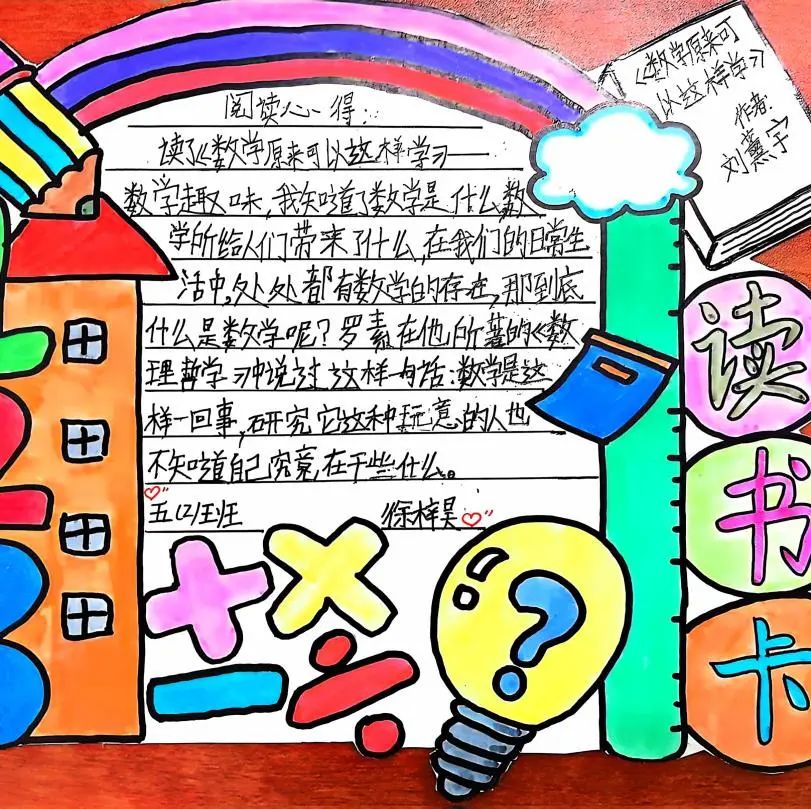 阅读心得:
读了《数学原来可以这样学习——
数学趣味,我知道了数学是什么,数
学所给人们带来了什么,在我们的日常生
活中,处处都有数学的存在,那到底
什么是数学呢?罗素在他所著的《数
理哲学》中说过这样一句话:数学是这
样一回事,研究它这种玩意的人也
不知道自己究竟在干些什么。
五(2)班 徐梓昊
《数学原来可
以这样学》
作者:
刘薰宇
读
书
卡
?